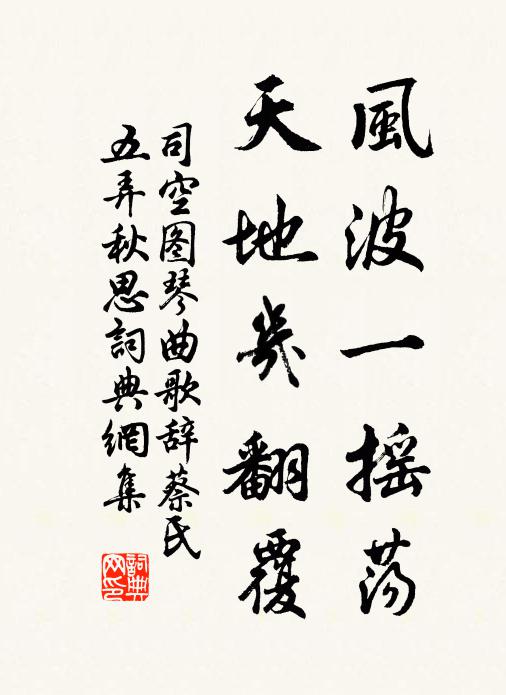 風波一摇荡
天地幾翻覆
司空图琴曲歌辞蔡氏
五弄秋思詞典網集
詞典
网印